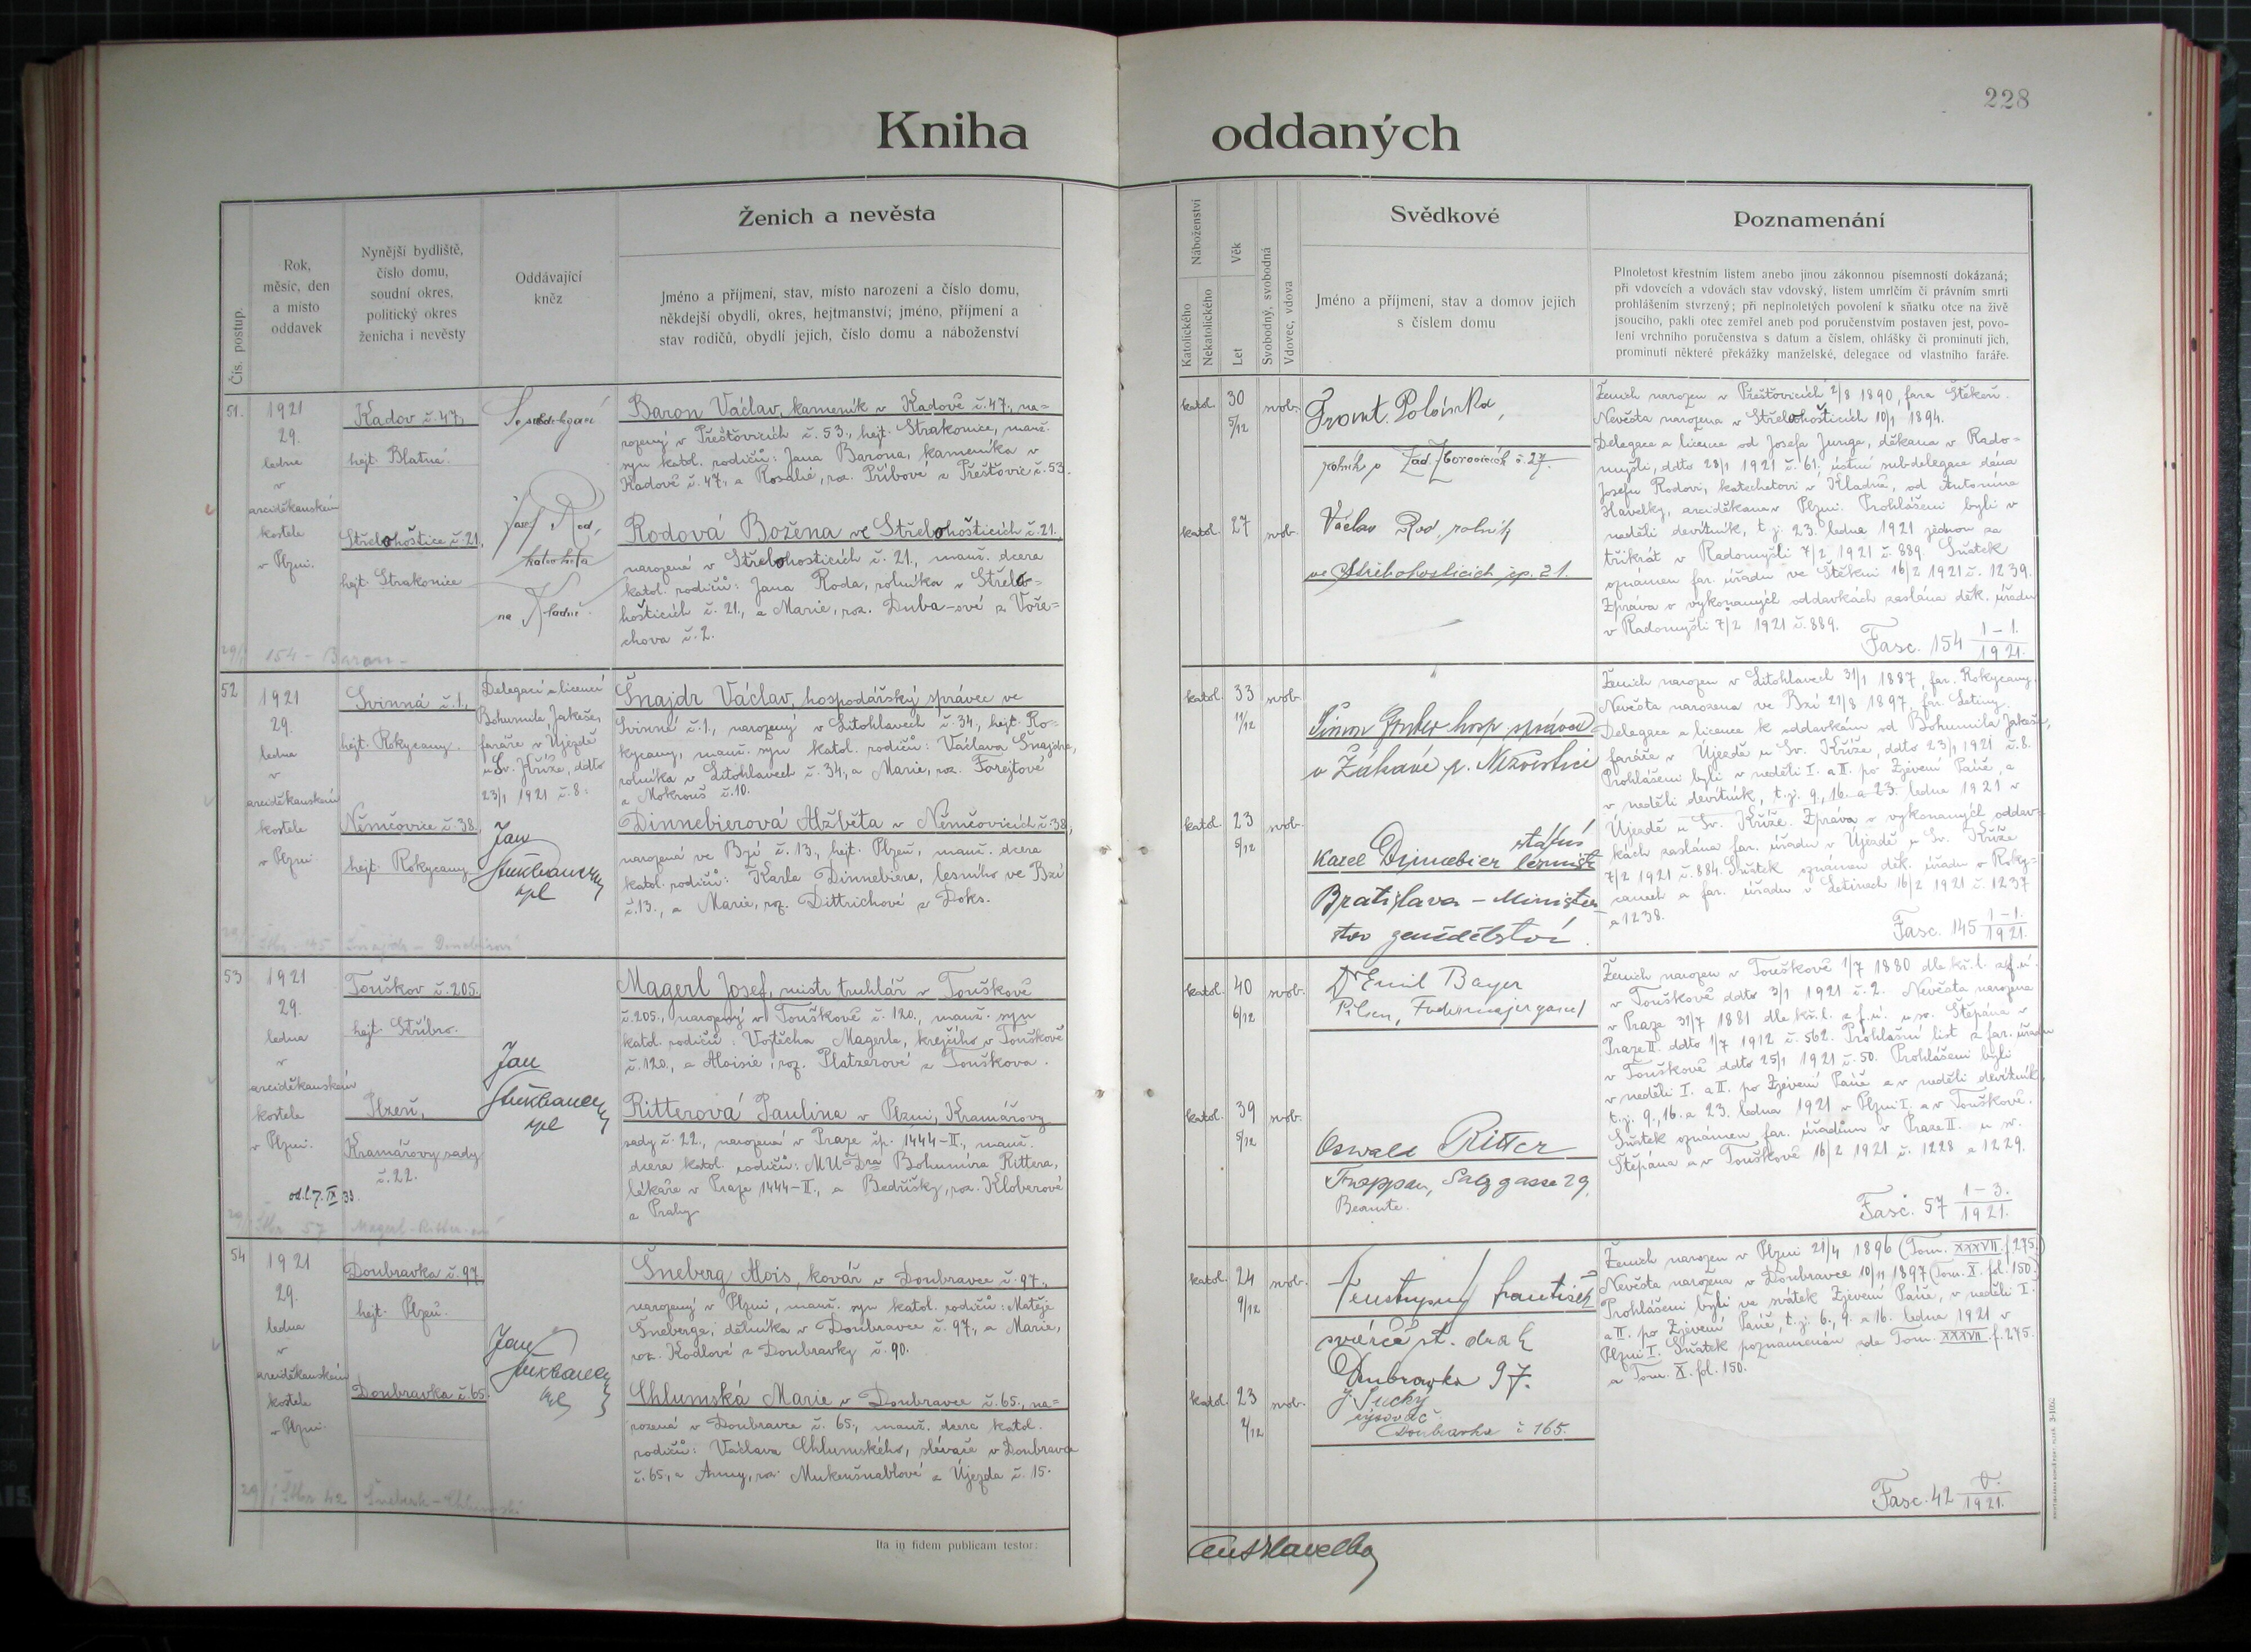 228
Kniha oddaných
Čís. postup.
Rok,
měsíc, den
a místo
oddavek
Nynější bydliště,
číslo domu,
soudní okres,
politický okres
ženicha i nevěsty
Oddávající
kněz
Ženich a nevěsta
Jméno a příjmení, stav, místo narození a číslo domu,
někdejší obydlí, okres, hejtmanství; jméno, příjmení a
stav rodičů, obydlí jejich, číslo domu a náboženství
Náboženství
Katolického
Nekatolického
Věk
Let
Svobodný, svobodná
Vdovec, vdova
Svědkové
Jméno a příjmení, stav a domov jejich
s číslem domu
Poznamenání
Plnoletost křestním listem anebo jinou zákonnou písemností dokázaná;
při vdovcích a vdovách stav vdovský, listem úmrlčím či právním smrti
prohlášením stvrzený; při neplnoletých povolení k sňatku otce na živě
jsoucího, pakli otec zemřel aneb pod poručenstvím postaven jest, povo-
lení vrchního poručenstva s datum a číslem, ohlášky či prominutí jich,
prominutí některé překážky manželské, delegace od vlastního faráře.
51.
1921
29.
ledna
v
arciděkanském
kostele
v Plzni.
Kadov č. 47,
hejt. Blatná.
Střelohoštice č. 21,
hejt. Strakonice
Josef Rod,
katecheta
na Kladně.
Baron Václav, kameník v Kadově č. 47., na-
rozený v Přešťovicích č. 53., hejt. Strakonice, manž.
syn katol. rodičů: Jana Barona, kameníka v
Kadově č. 47., a Rosalie, roz. Příbové z Přešťovic č. 53.
Rodová Božena ve Střelohošticích č. 21.,
narozená v Střelohosticích č. 21., manž. dcera
katol. rodičů: Jana Roda, rolníka v Střelo-
hošticích č. 21., a Marie, roz. Duba-ové z Voře-
chova č. 2.
154 - Baron -
katol.
30
5/12
svob.
katol.
27
svob.
Frant. Polánka,
rolník v Zad. Zborovicích č. 27.
Václav Rod, rolník
ve Střelohosticích čp. 21.
Ženich narozen v Přešťovicích 2/8 1890, fara Štěkeň.
Nevěsta narozena v Střelohošticích 10/1 1894.
Delegace a licence od Josefa Junga, děkana v Rado-
myšli, ddto 28/1 1921 č. 61; ústní subdelegace dána
Josefu Rodovi, katechetovi v Kladně, od Antonína
Havelky, arciděkana v Plzni. Prohlášeni byli v
neděli devítník, t. j. 23. ledna 1921 jednou za
třikrát v Radomyšli 7/2 1921 č. 889. Sňatek
oznámen far. úřadu ve Štěkni 16/2 1921 č. 1239.
Zpráva o vykonaných oddavkách zaslána děk. úřadu
v Radomyšli 7/2 1921 č. 889.
Fasc. 154 1-1. 1921.
52
1921
29.
ledna
v
arciděkanském
kostele
v Plzni.
Svinná č. 1.,
hejt. Rokycany.
Němčovice č. 38.,
hejt. Rokycany.
Delegací a licencí
Bohumila Jakeše,
faráře v Újezdě
u Sv. Kříže, ddto
23/1 1921 č. 8.
Jan
Šnajdr Václav, hospodářský správce ve
Svinné č. 1., narozený v Litohlavech č. 34., hejt. Ro-
kycany, manž. syn katol. rodičů: Václava Šnajdra,
rolníka v Litohlavech č. 34., a Marie, roz. Forejtové
z Mokrouš č. 10.
Dinnebierová Alžběta v Němčovicích č. 38,
narozená ve Bzí č. 13., hejt. Plzeň, manž. dcera
katol. rodičů: Karla Dinnebiera, lesního ve Bzí
č. 13., a Marie, roz. Dittrichové z Doks.
katol.
33
11/12
svob.
katol.
23
5/12
svob.
Šimon Gruber hosp správce
v Žákavé p. Nezvěstice
Karel Dinnebier
Bratislava - Minister
stvo zemědělství.
Ženich narozen v Litohlavech 31/1 1887, far. Rokycany.
Nevěsta narozena ve Bzí 21/8 1897, far. Letiny.
Delegace a licence k oddavkám od Bohumila Jakeše,
faráře v Újezdě u Sv. Kříže, ddto 23/1 1921 č. 8.
Prohlášeni byli v neděli I. a II. po Zjevení Páně, a
v neděli devítník, t. j. 9., 16. a 23. ledna 1921 v
Újezdě u Sv. Kříže. Zpráva o vykonaných oddav-
kách zaslána far. úřadu v Újezdě u Sv. Kříže
7/2 1921 č. 884. Sňatek oznámen děk. úřadu v Roky-
canech a far. úřadu v Letinech 16/2 1921 č. 1237
a 1238.
Fasc. 145 1-1. 1921.
53
1921
29.
ledna
v
arciděkanském
kostele
v Plzni.
Touškov č. 205.
hejt. Stříbro.
Plzeň,
Kramářovy sady
č. 22.
Jan
Magerl Josef, mistr truhlář v Touškově
č. 205., narozený v Touškově č. 120., manž. syn
katol. rodičů: Vojtěcha Magerla, krejčího v Touškově
č. 120., a Aloisie, roz. Platzerové z Touškova.
Ritterová Paulina v Plzni, Kramářovy
sady č. 22., narozená v Praze čp. 1444-II., manž.
dcera katol. rodičů: MUDra Bohumíra Rittera,
lékaře v Praze 1444-II., a Bedřišky, roz. Kloberové
z Prahy
57 Magerl - Ritter-ová
katol.
40
6/12
svob.
katol.
39
5/12
svob.
Dr Emil Bayer
Pilsen,
Oswald Ritter
Troppau, Salzgasse 29,
Beamte.
Ženich narozen v Touškově 1/7 1880 dle kř. l. z f. ú.
v Touškově ddto 3/1 1921 č. 2. Nevěsta narozena
v Praze 31/7 1881 dle kř. l. z f. ú. u sv. Štěpána v
Praze II. ddto 1/7 1912 č. 562. Prohlašní list z far. úřadu
v Touškově ddto 25/1 1921 č. 50. Prohlášeni byli
v neděli I. a II. po Zjevení Páně a v neděli devítník,
t. j. 9., 16. a 23. ledna 1921 v Plzni I. a v Touškově.
Sňatek oznámen far. úřadům v Praze II. u sv.
Štěpána a v Touškově 16/2 1921 č. 1228 a 1229.
Fasc. 57 1-3. 1921.
54
1921
29.
ledna
v
arciděkanském
kostele
v Plzni.
Doubravka č. 97
hejt. Plzeň.
Doubravka č. 65.
Jan
Šneberg Alois, kovář v Doubravce č. 97.,
narozený v Plzni, manž. syn katol. rodičů: Matěje
Šneberga, dělníka v Doubravce č. 97., a Marie,
roz. Kodlové z Doubravky č. 90.
Chlumská Marie v Doubravce č. 65., na-
rozená v Doubravce č. 65., manž. dcera katol.
rodičů: Václava Chlumského, slévače v Doubravce
č. 65., a Anny, roz. Mukenšnablové z Újezda č. 15.
katol.
24
9/12
svob.
katol.
23
2/12
svob.
František
Doubravka 97.
J. Suchý
rýsovač
Doubravka č 165.
Ženich narozen v Plzni 21/4 1896 (Tom. XXXVII. f. 275.)
Nevěsta narozena v Doubravce 10/11 1897 (Tom. X. fol. 150.)
Prohlášeni byli ve svátek Zjevení Páně, v neděli I.
a II. po Zjevení Páně, t. j. 6., 9. a 16. ledna 1921 v
Plzni I. Sňatek poznamenán zde Tom. XXXVII. f. 275.
a Tom. X. fol. 150.
Fasc. 42 V. 1921.
Ita in fidem publicam testor:
Ant Havelka